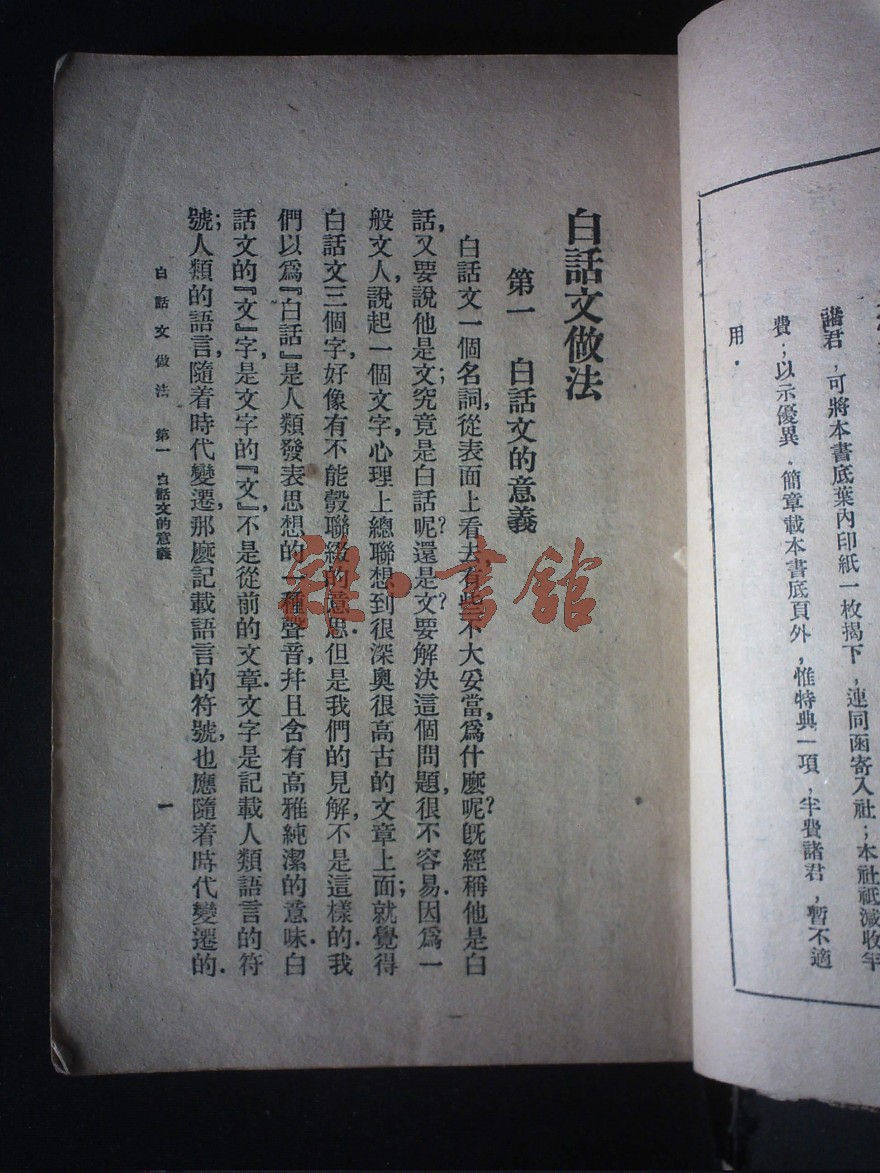 諸君,可將本書底葉內印紙一枚揭下,連同函寄入社;本社祗減收半
費;以示優異.簡章載本書底頁外,惟特典一項,半費諸君,暫不適
用.
白話文做法
第一 白話文的意義
白話文一個名詞,從表面上看去,有些不大妥當,爲什麼呢?旣經稱他是白
話,又要說他是文;究竟是白話呢?還是文?要解決這個問題,很不容易.因爲一
般文人,說起一個文字,心理上總聯想到很深奧很高古的文章上面;就覺得
白話文三個字,好像有不能彀聯綴的意思.但是我們的見解,不是這樣的.我
們以爲『白話』是人類發表思想的一種聲音,幷且含有高雅純潔的意味.白
話文的『文』字,是文字的『文』,不是從前的文章.文字是記載人類語言的符
號;人類的語言,隨着時代變遷,那麼記載語言的符號,也應隨着時代變遷的.
白話文做法 第一 白話文的意義 一
雜·書館